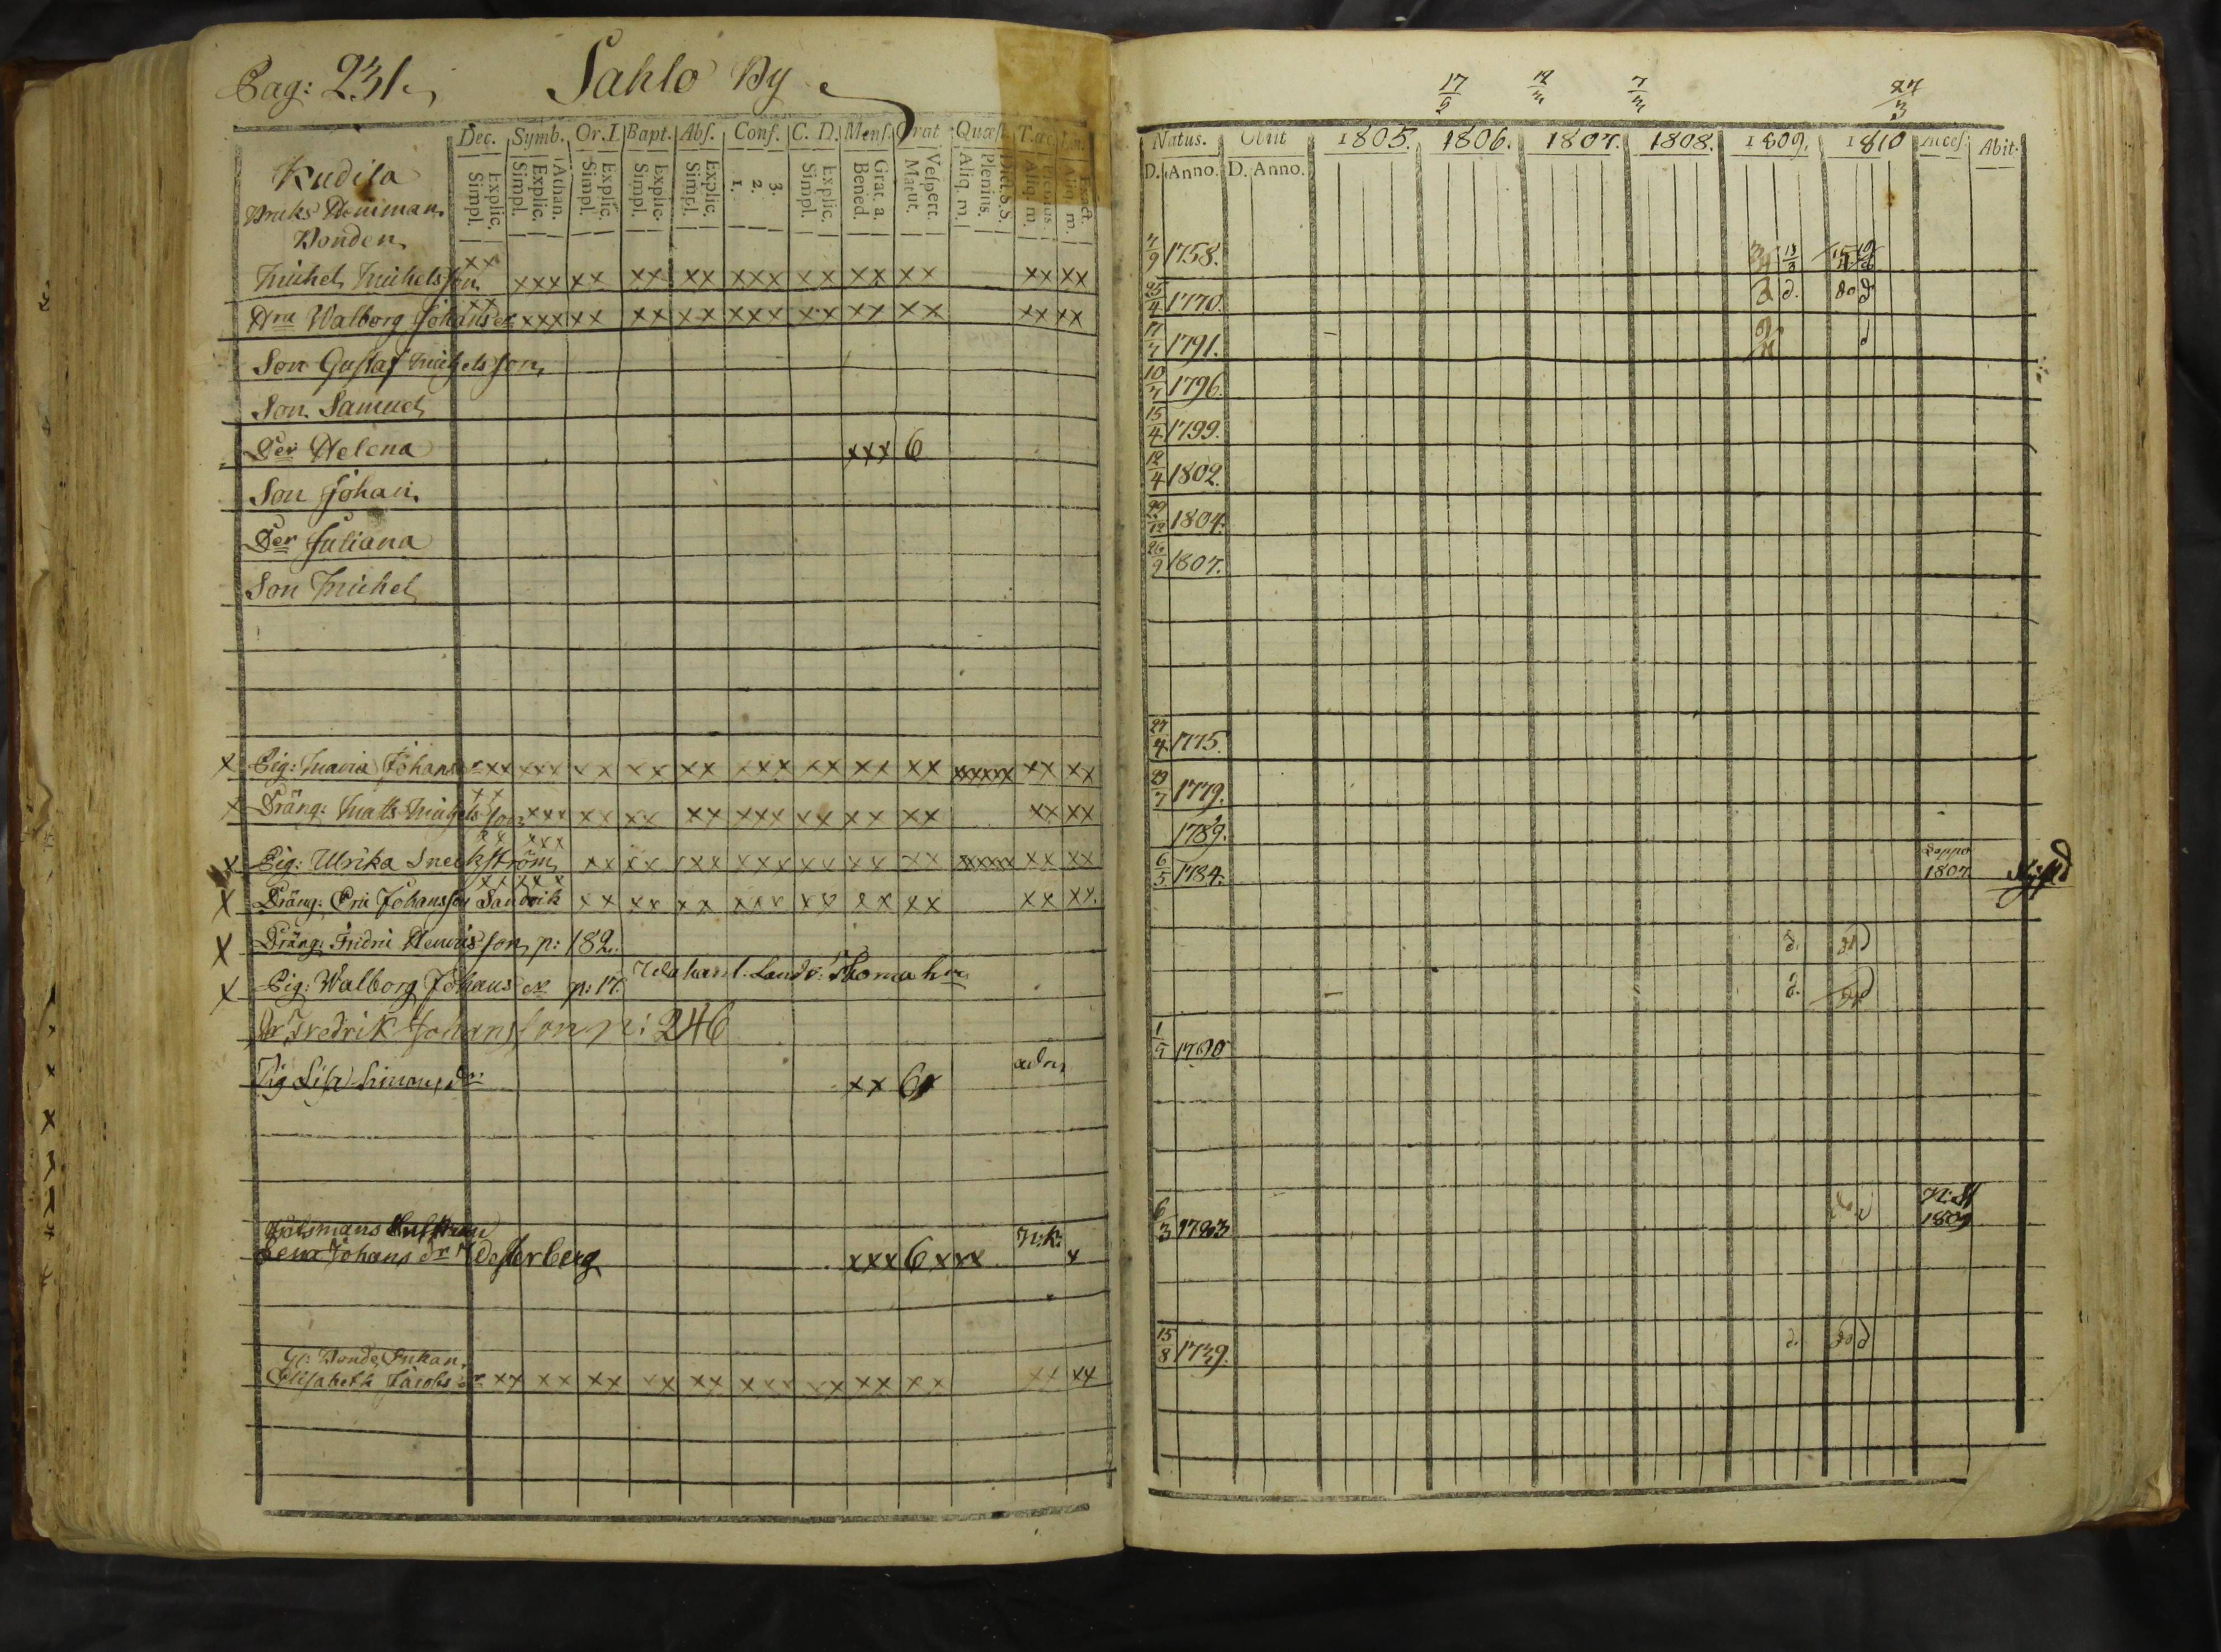 Pag: 231. Sahlo By
Dec. Symb. Or. I. Bapt. Abs. Conf. C. D. Mens. Orat Quæst.
Explic. Simpl. Athan. Explic. Simpl. Explic. Simpl. Explic. Simpl. Explic. Simpl. 3. 2. 1. Explic. Simpl. Grat. a. Bened. Vespert. Matut. Dict. S.S. Plenius. Aliq. m. Aliq. m. Exact. Aliq. m.
Kudila
Bonden
Michel Michelsson xx xxx xx xx xx xxx xx xx xx xx xx
Hru Walborg Johansdr xx xxx xx xx xx xxx xx xx xx xx xx
Son Gustaf Michelsson
Son Samuel
Der Helena xxx 6
Son Johan
Der Juliana
Son Michel
x Pig: Maria Johansdr xx xxx xx xx xx xxx xx xx xx xxxxx xx xx
x Dräng: Matts Michelsson xx xxx xx xx xx xxx xx xx xx xx xx
x Pig: Ulrika Sneckström xx xxx xx xx xxx xxx xx xx xx xxxxx xx xx
x Dräng: Eric Johansson Sandvik xx xxx xx xx xx xxx xx xx xx xx xx
x Dräng: Fridric Henricsson p: 182.
x Pig: Walborg Johansdr p: 17.
Dr Fredrik Johansson p: 246
Pig Lisa Simonsdr xx 6
Lena Johansdr Westerberg xxx 6 xxx x
Elisabeth Jacobsdr xx xx xx xx xx xxx xx xx xx xx xx
17/9 12/3 7/3 27/3
Natus. Obiit 1805. 1806. 1807. 1808. 1809. 1810 Access. Abit.
D. Anno. D. Anno.
7/9 1758.
25/4 1770.
1791.
10/7 1796.
15/4 1799.
12/4 1802.
29/12 1804.
26/9 1807.
27/4 1775.
29/7 1779.
1789.
6/5 1784. 1807
1790
6/3 1793 1809
15/8 1739.